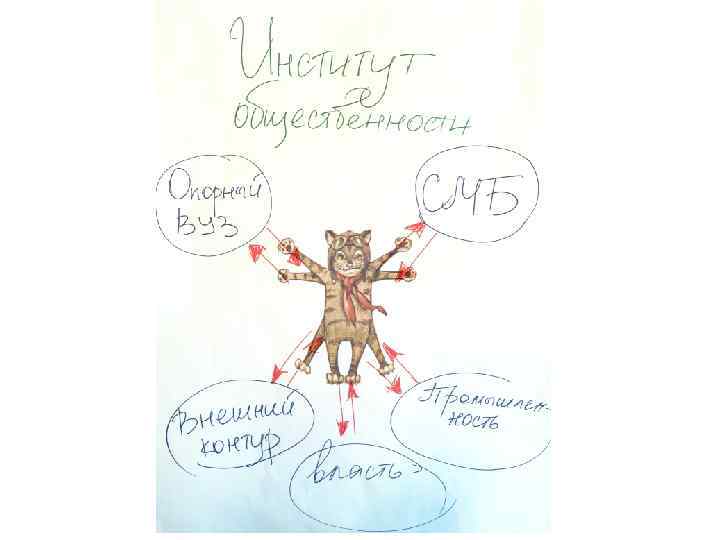 Институт
общественности
Опорный
ВУЗ
СМБ
Внешний
контур
власть
Промышлен-
ность